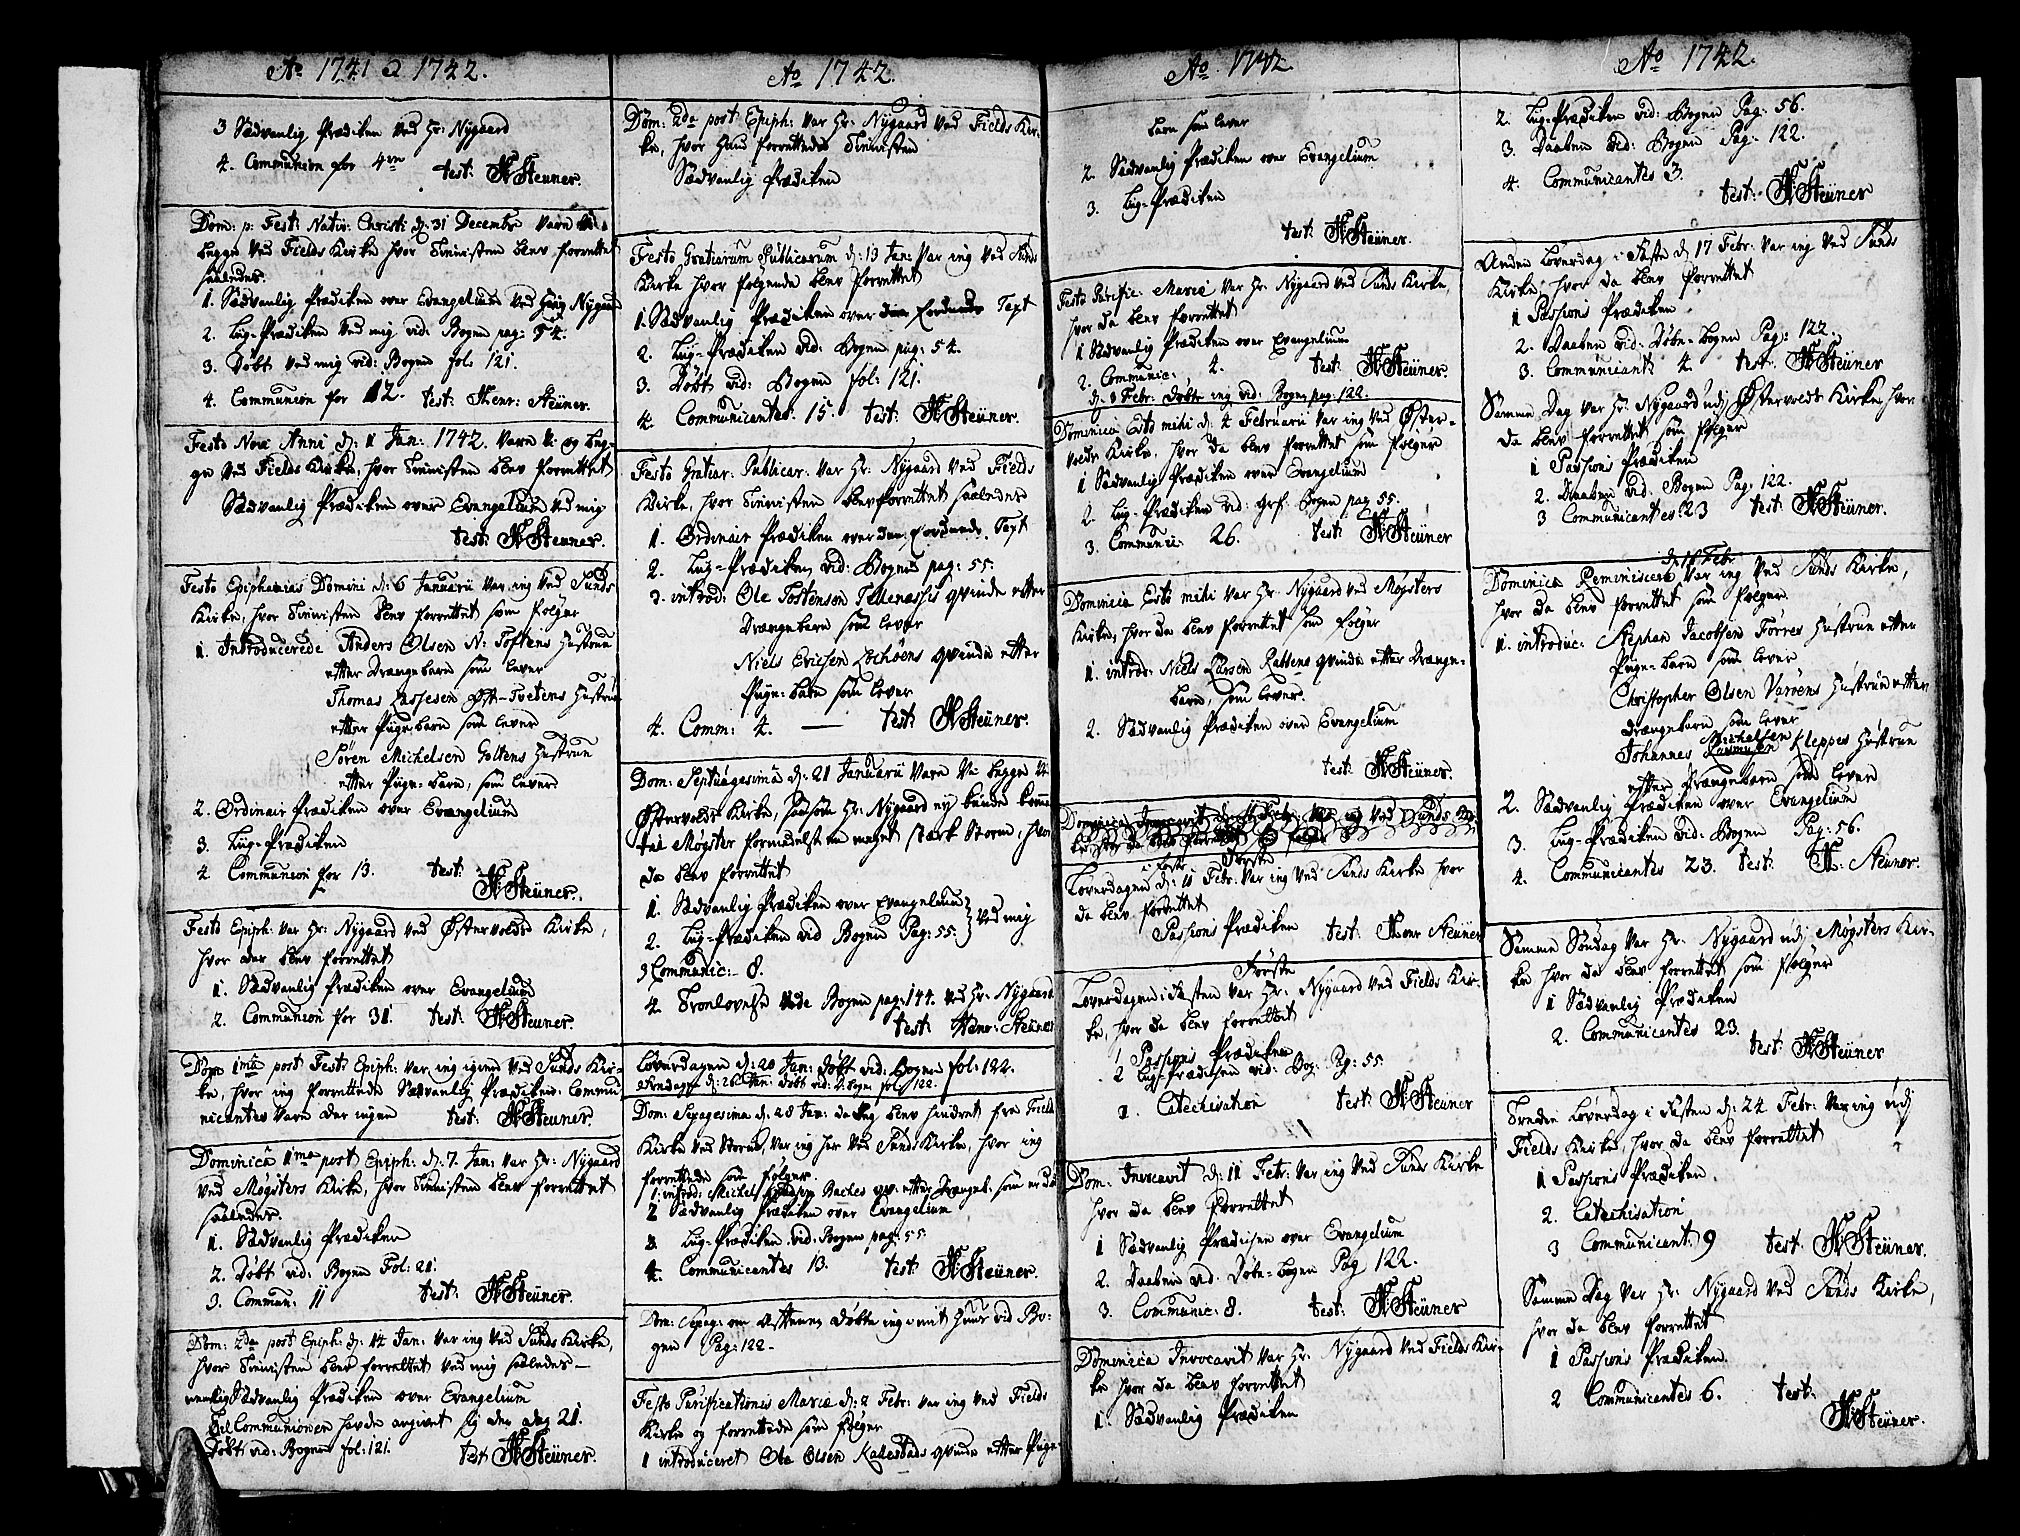 Ao 1741 & 1742.
3 Sædvanlig Prædiken ved Hr: Nÿgaard
4. Communion for 4re test: H Steüner.
Dom: p: Fest: Nativ: Christi d: 31 Decembr varen
begge ved Fields Kirke hvor Tienisten blev forrettet
saaledes.
1. Sædvanlig Prædiken over Evangelium ved Nÿgaard
2. Liig-Prædiken ved mig vid: Bogen pag: 54.
3. Døbt ved mig vid: Bogen fol: 121.
4. Communion for 12. test: Henr: Steüner.
Festo Novi Anni d: 1 Jan: 1742. varen Vi og beg-
ge ved Fields Kirke, hvor Tienisten blev forrettet
Sædvanlig Prædiken over Evangelium ved mig
test: H Steüner.
Festo Epiphanias Domini d: 6 Januarii var ieg ved Sunds
Kirke, hvor Tienisten blev forrettet som følger
1. Introducerede Anders Olsen N: Toftens Hustrue
efter Drængebarn som lever
Thomas Lassesen Øst-Tvetens Hustrue
efter Pigebarn som lever
Søren Michelsen Goltens Hustrue
efter Pige-barn, som lever
2. Ordinair Prædiken over Evangelium
3. Liig-Prædiken
4 Communion for 13. test:
H Steüner.
Festo Epiph: var Hr: Nÿgaard ved Østervolds Kirke,
hvor der blev forrettet
1. Sædvanlig Prædiken over Evangelium
2. Communion for 31. test: H Steüner.
Dom 1ma post Fest: Epiph: var ieg igien ved Sunds Kir-
ke, hvor ieg forrettede Sædvanlig Prædiken: Commu-
nicantes varen der ingen test: H Steüner.
Dominica 1ma post Epiph: d: 7. Jan: var Hr: Nÿgaard
ved Møgsters Kirke, hvor Tienisten blev forrettet
saaledes.
1. Sædvanlig Prædiken
2. Døbt vid: Bogen Fol: 21.
3. Commun: 11 test: H Steüner.
Dom: 2da post Epiph: d: 14 Jan: var ieg ved Sunds Kirke,
hvor Tienisten blev forrettet ved mig saaledes—
nemlig Sædvanlig Prædiken over Evangelium
Til Communionen havde angivet sig den dag 21.
Døbt vid: Bogen fol: 121. test H Steüner.
Ao 1742.
Dom: 2da post Epiph: var Hr: Nÿgaard ved Fields Kir-
ke, hvor Hand forrettede Tienisten
Sædvanlig Prædiken
Festo Gratiarum Publicarum d: 19 Jan: var ieg ved Sunds
Kirke hvor følgende blev forrettet
1. Sædvanlig Prædiken over Text
2. Liig-Prædiken vid: Bogen pag: 54.
3. Døbt vid: Bogen fol: 121.
4. Communicantes: 15. test: H Steüner.
Festo Gratiar: Publicar: var Hr: Nÿgaard ved Fields
Kirke, hvor Tienisten blev forrettet saaledes
1. Ordinair Prædiken over Text
2. Liig-Prædiken vid: Bogen pag: 55.
3. introd: Ole Tostenson Tellenæssis qvinde efter
Drængebarn som lever
Niels Ericsen Lochøens qvinde efter
Pige-barn som lever
4. Comm: 4. — test: H Steüner.
Dom: Septuagesima d: 21 Januarii varen Vi begge til
Østervolds Kirke, saasom Hr: Nÿgaard eÿ kunde komme
til Møgster formedelst en meget stærk Storm, hvor
da blev forrettet
1. Sædvanlig Prædiken over Evangelium
2. Liig-Prædiken vid Bogen Pag: 55. } ved mig
3 Communic: 8.
4. Tronlovelse vide Bogen pag: 144. ved Hr: Nÿgaard
test: Henr: Steüner
Løverdagen d: 20 Jan: Døbt vid: Bogen fol: 122.
Fredagen d: 26 Jan: døbt vid: D. Bogen fol: 122.
Dom: Sexagesima d: 28 Jan: da ieg blev hindret fra Fields
Kirke ved Storm, var ieg her ved Sunds Kirke, hvor ieg
forrettede som følger.
1. introd: Michel Baches qv: efter Drængeb: som er død
2 Sædvanlig Prædiken over Evangelium
3. Liig-Prædiken vid: Bogen pag: 55.
4. Communicantes 13. test: H Steüner.
Dom: Sexag: om Aftenen døbte ieg i mit Huus vid Bo-
gen Pag: 122.
Festo Purificationis Mariæ d: 2 Febr: var ieg ved Fields
Kirke og forrettede som følger
1 introduceret Ole Olsen Kallestads qvinde efter Pige-
Ao 1742
barn som lever
2. Sædvanlig Prædiken over Evangelium
3. Liig-Prædiken
test: H Steüner.
Festo Purific: Mariæ var Hr: Nÿgaard ved Sunds Kirke,
hvor da blev forrettet
1 Sædvanlig Prædiken over Evangelium
2. Communic: 2. test: H Steüner.
d: Febr: døbte ieg vid: Bogen pag: 122.
Dominica Esto mihi d: 4 Februarii var ieg ved Øster-
volds Kirke, hvor da blev forrettet som følger
1 Sædvanlig Prædiken over Evangelium
2. Liig-Prædiken vid: Bogen pag 55.
3. Communic: 26. test: H Steüner
Dominica Esto mihi var Hr: Nÿgaard ved Møgsters
Kirke, hvor da blev forrettet som følger
1. introd: Niels Larsen Rabbens qvinde efter Drænge-
barn, som lever.
2. Sædvanlig Prædiken over Evangelium
test: H Steüner.
Dominica Invocavit d: 11 Febr: var ieg ved Sunds Kir-
ke hvor da blev forrettet
Første
i Faste
Løverdagen d: Febr: var ieg ved Sunds Kirke hvor
da blev forrettet
Passions Prædiken test: Henr Steüner
Første
Løverdagen i Fasten var Hr: Nÿgaard ved Fields Kir-
ke, hvor da blev forrettet
1 Passions Prædiken
2 Liig-Prædiken vid: Bog: Pag: 55.
Catechisation test: H Steüner
Dom: Invocavit d: 11 Febr: var ieg ved Sunds Kirke
hvor da blev forrettet
1 Sædvanlig Prædiken over Evangelium
2. Daaben vid: Døbe-bogen Pag 122.
3. Communic: 8. test: H Steüner
Dominica Invocavit var Hr: Nÿgaard ved Fields Kir-
ke hvor da blev forrettet
1. Sædvanlig Prædiken
Ao 1742.
2. Liig-Prædiken vid: Bogen Pag: 56.
3. Daaben vid: Bogen Pag: 122.
4. Communicantes 3.
test: H Steüner
Anden Løverdag i Faste d: 17 Febr: var ieg ved Sunds
Kirke, hvor da blev forrettet
1 Passions Prædiken
2. Daaben vid: Døbe-bogen Pag: 122.
3. Communicant: 4 test: H Steüner
Samme Dag var Hr: Nÿgaard udj Østervolds Kirke, hvor
da blev forrettet som følger
1 Passions Prædiken
2. Daaben vid: Bogen Pag: 122.
3 Communicantes: 23 test: H Steüner.
d: 18 Febr:
Dominica Reminiscere var ieg ved Sunds Kirke,
hvor da blev forrettet som følger
1. introduc: Stephan Jacobsen Førres Hustrue efter
Pige-barn som lever
Christopher Olsen Varøens Hustrue efter
Drængebarn som lever
Michelsen
Johannes Rasmusen Kleppes Hustrue
efter Drængebarn som lever
2. Sædvanlig Prædiken over Evangelium
3. Liig-Prædiken vid: Bogen Pag: 56.
4. Communicantes 23. test: H: Steüner.
Samme Søndag var Hr: Nÿgaard udj Møgsters Kir-
ke hvor da blev forrettet som følger
1 Sædvanlig Prædiken
2. Communicantes 23.
test: H Steüner
Tredie Løverdag i Fasten d: 24 Febr: var ieg udj
Fields Kirke, hvor da blev forrettet
1 Passions Prædiken.
2. Catechisation
3 Communicant: 9 test. H Steüner.
Samme Dag var Hr: Nÿgaard ved Sunds Kirke,
hvor da blev forrettet
1 Passions Prædiken.
2 Communicantes 6. test:
H Steüner.